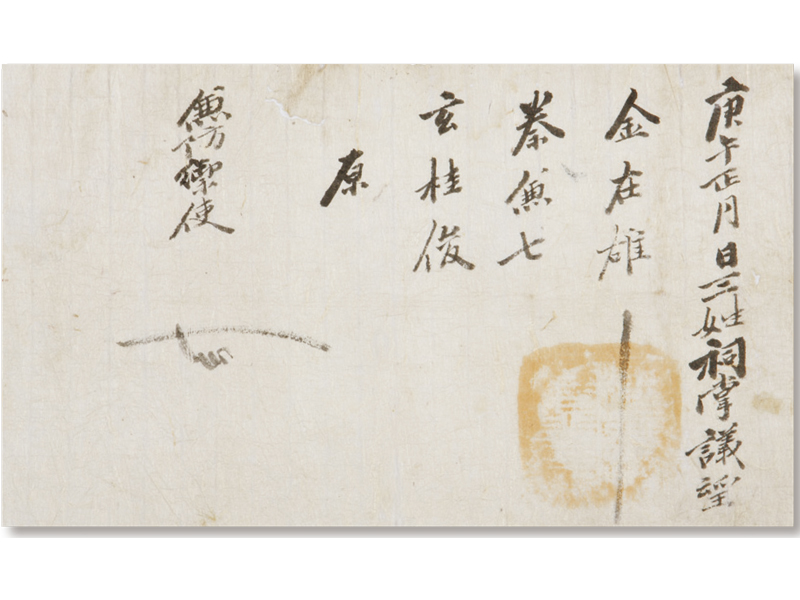 庚午正月日三姓祠掌議望
金在雄
秦㷌七
玄桂俊
原
兼防禦使